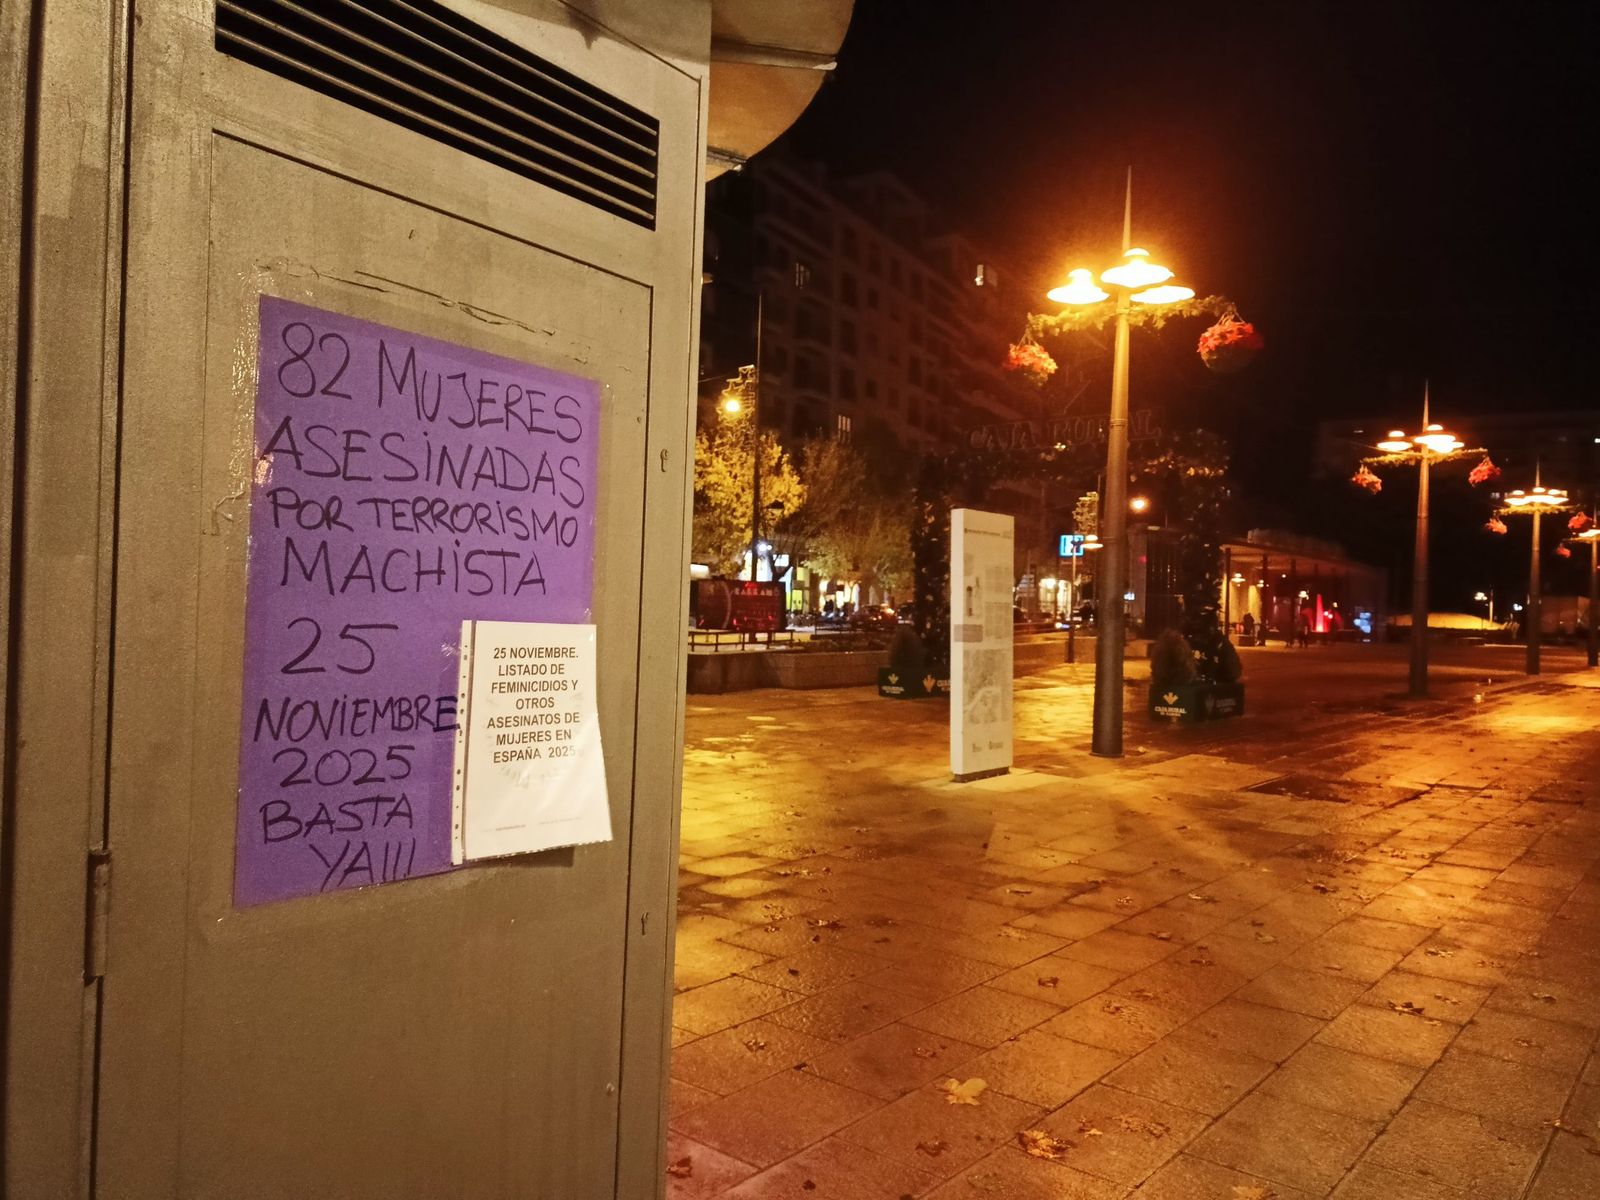 82 MUJERES
ASESINADAS
POR TERRORISMO
MACHISTA
25
NOVIEMBRE
2025
BASTA
YA!!!
25 NOVIEMBRE.
LISTADO DE
FEMINICIDIOS Y
OTROS
ASESINATOS DE
MUJERES EN
ESPAÑA 2025
CAJA RURAL
CAJA RURAL